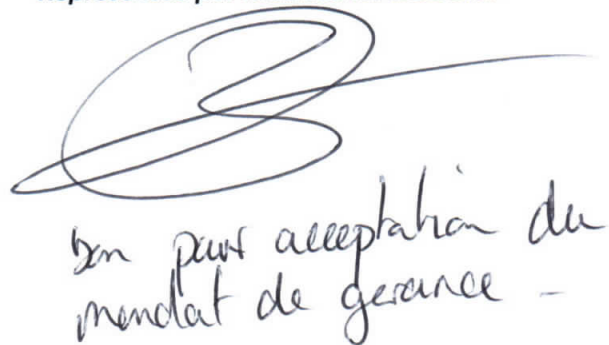 bon pour acceptation du
mandat de gerance -